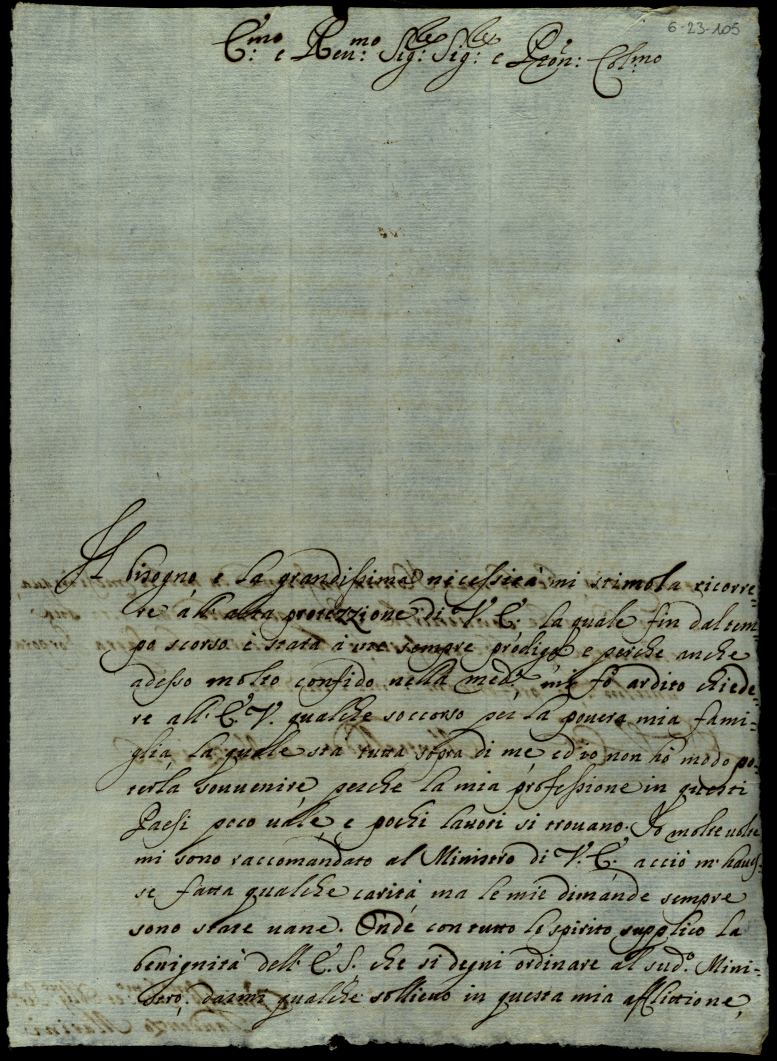 6-23-105
E.mo e Ren.mo Sig.r Sig.r e Pron: Col.mo
Il bisogno e la grandissima necessità mi stimola ricorre-
re all'alta protezzione di V. E. la quale fin dal tem
po scorso è stata à me sempre prodiga e perche anche
adesso molto confido nella med.a mi fò ardito chiede-
re all' E. V. qualche soccorso per la povera mia fami-
glia, la quale stà tutta sopra di me, ed io non hò modo po-
terla souvenire, perche la mia professione in questi
Paesi poco uale, e pochi lauori si trouano. Io molte uolte
mi sono raccomandato al Ministro di V. E. acciò m'haues-
se fatta qualche carità ma le mie dimànde sempre
sono state uane. Onde con tutto lo spirito supplico la
benignità dell' E. S. che si degni ordinare al sud.o Mini-
stro, darmi qualche sollieuo in questa mia afflittione,